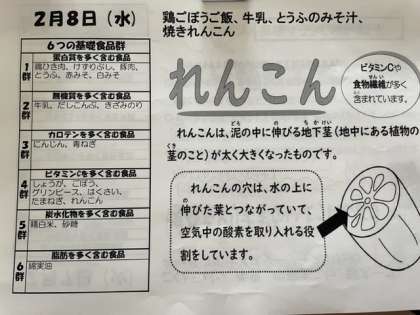 2月8日(水)
鶏ごぼうご飯、牛乳、とうふのみそ汁、
焼きれんこん
6つの基礎食品群
1群
蛋白質を多く含む食品
鶏ひき肉、けずりぶし、豚肉、
とうふ、赤みそ、白みそ
2群
無機質を多く含む食品
牛乳、だしこんぶ、きざみのり
3群
カロテンを多く含む食品
にんじん、青ねぎ
4群
ビタミンCを多く含む食品
しょうが、ごぼう、
グリンピース、はくさい、
たまねぎ、れんこん
5群
炭水化物を多く含む食品
精白米、砂糖
6群
脂肪を多く含む食品
綿実油
れんこん
ビタミンCや
せんい
食物繊維が多く
含まれています。
どろ の ちかけい
れんこんは、泥の中に伸びる地下茎(地中にある植物の
くき
茎のこと)が太く大きくなったものです。
れんこんの穴は、水の上に
の
伸びた葉とつながっていて、
空気中の酸素を取り入れる役
割をしています。